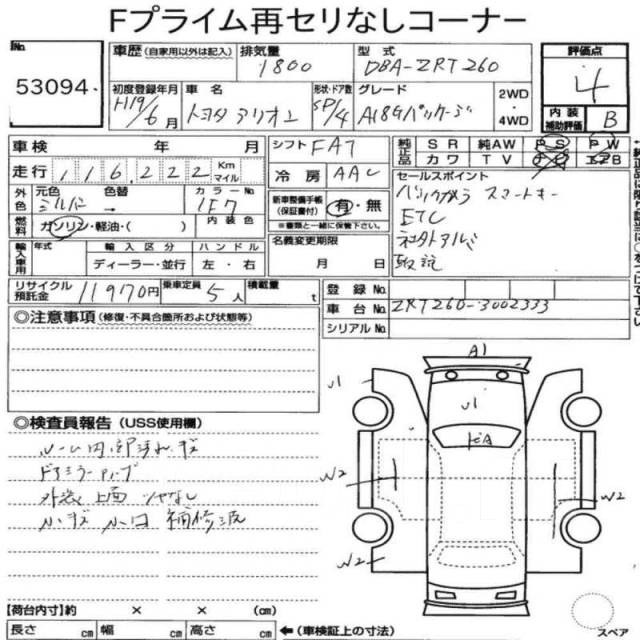 Fプライム再セリなしコーナー
No. 53094
車歴 (自家用以外は記入) 排気量 1800 型式 DBA-ZRT260 評価点 4
初度登録年月 H19/6月 車名 トヨタ アリオン 形状・ドア数 SD/4 グレード A18Gパッケージ 2WD・4WD 内装補助評価 B
車検 年 月 シフト FAT 純正品 SR 純AW PS PW
カワ TV エアB
走行 116,222 Km マイル 冷房 AAC セールスポイント
外色 元色 シルバー 色替 → カラーNo 1F7 新車整備手帳(保証書付) 有・無 バックカメラ スマートキー
※書類と一緒に保管下さい。 ETC
燃料 ガソリン・軽油・( ) 内装色 名義変更期限 社外アルミ
輸入車用 年式 輸入区分 ハンドル 月 日 取説
ディーラー・並行 左・右
リサイクル預託金 11970円 乗車定員 5人 積載量 t 登録No.
車台No. ZRT260-3002333
シリアルNo.
◎注意事項 (修復・不具合箇所および状態等)
A1
U1 U1
◎検査員報告 (USS使用欄)
ルーム内部汚れ・キズ
ドアミラー
外装上面 ツヤなし
小キズ 小凹 補修波
W2 W2
W2
【荷台内寸】約 × × (cm)
長さ cm 幅 cm 高さ cm ←(車検証上の寸法) スペア